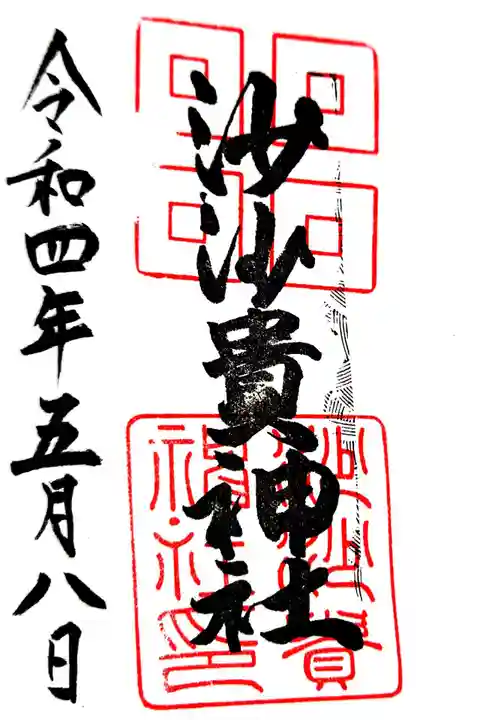 沙沙貴神社
沙沙貴
神社印
令和四年五月八日